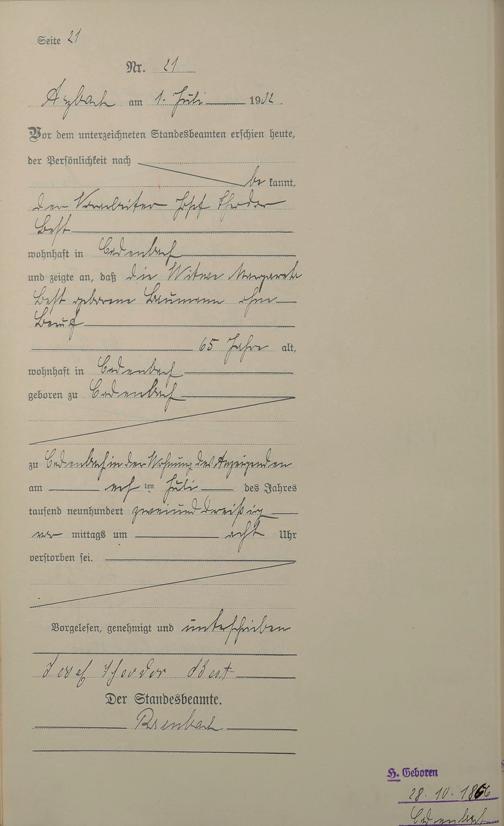 Seite 21
Nr. 21
Asbach am 1. Juli 1932.
Vor dem unterzeichneten Standesbeamten erschien heute,
der Persönlichkeit nach
be kannt,
der Vorarbeiter Josef Theodor
Best
wohnhaft in Bedenbach
und zeigte an, daß die Witwe Margareta
Best geborene Baumann ohne
Beruf
65 Jahre alt,
wohnhaft in Bedenbach
geboren zu Bedenbach
zu Bedenbach in der Wohnung des Anzeigenden
am ten Juli des Jahres
tausend neunhundert zweiunddreißig
vor mittags um acht Uhr
verstorben sei.
Vorgelesen, genehmigt und unterschrieben
Josef Theodor Best
Der Standesbeamte.
H. Geboren
28. 10. 1866